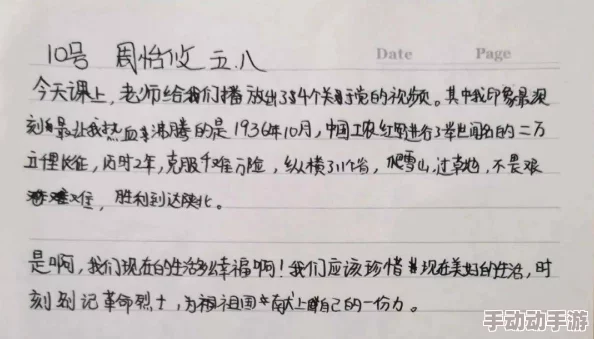 10号 周怡攸 五.八
Date Page
今天课上，老师给我们播放出了4个关于党的视频。其中我印象最深
刻最让我热血沸腾的是1936年10月，中国工农红军进行了举世闻名的二万
五千里长征，历时2年，克服千难万险，纵横了11个省，爬雪山，过草地，不畏艰
难，胜利到达陕北。
是啊，我们现在的生活多幸福啊！我们应该珍惜现在美妇的生活，时
刻别记革命烈士，为祖国献上自己的一份力。
手动动手游